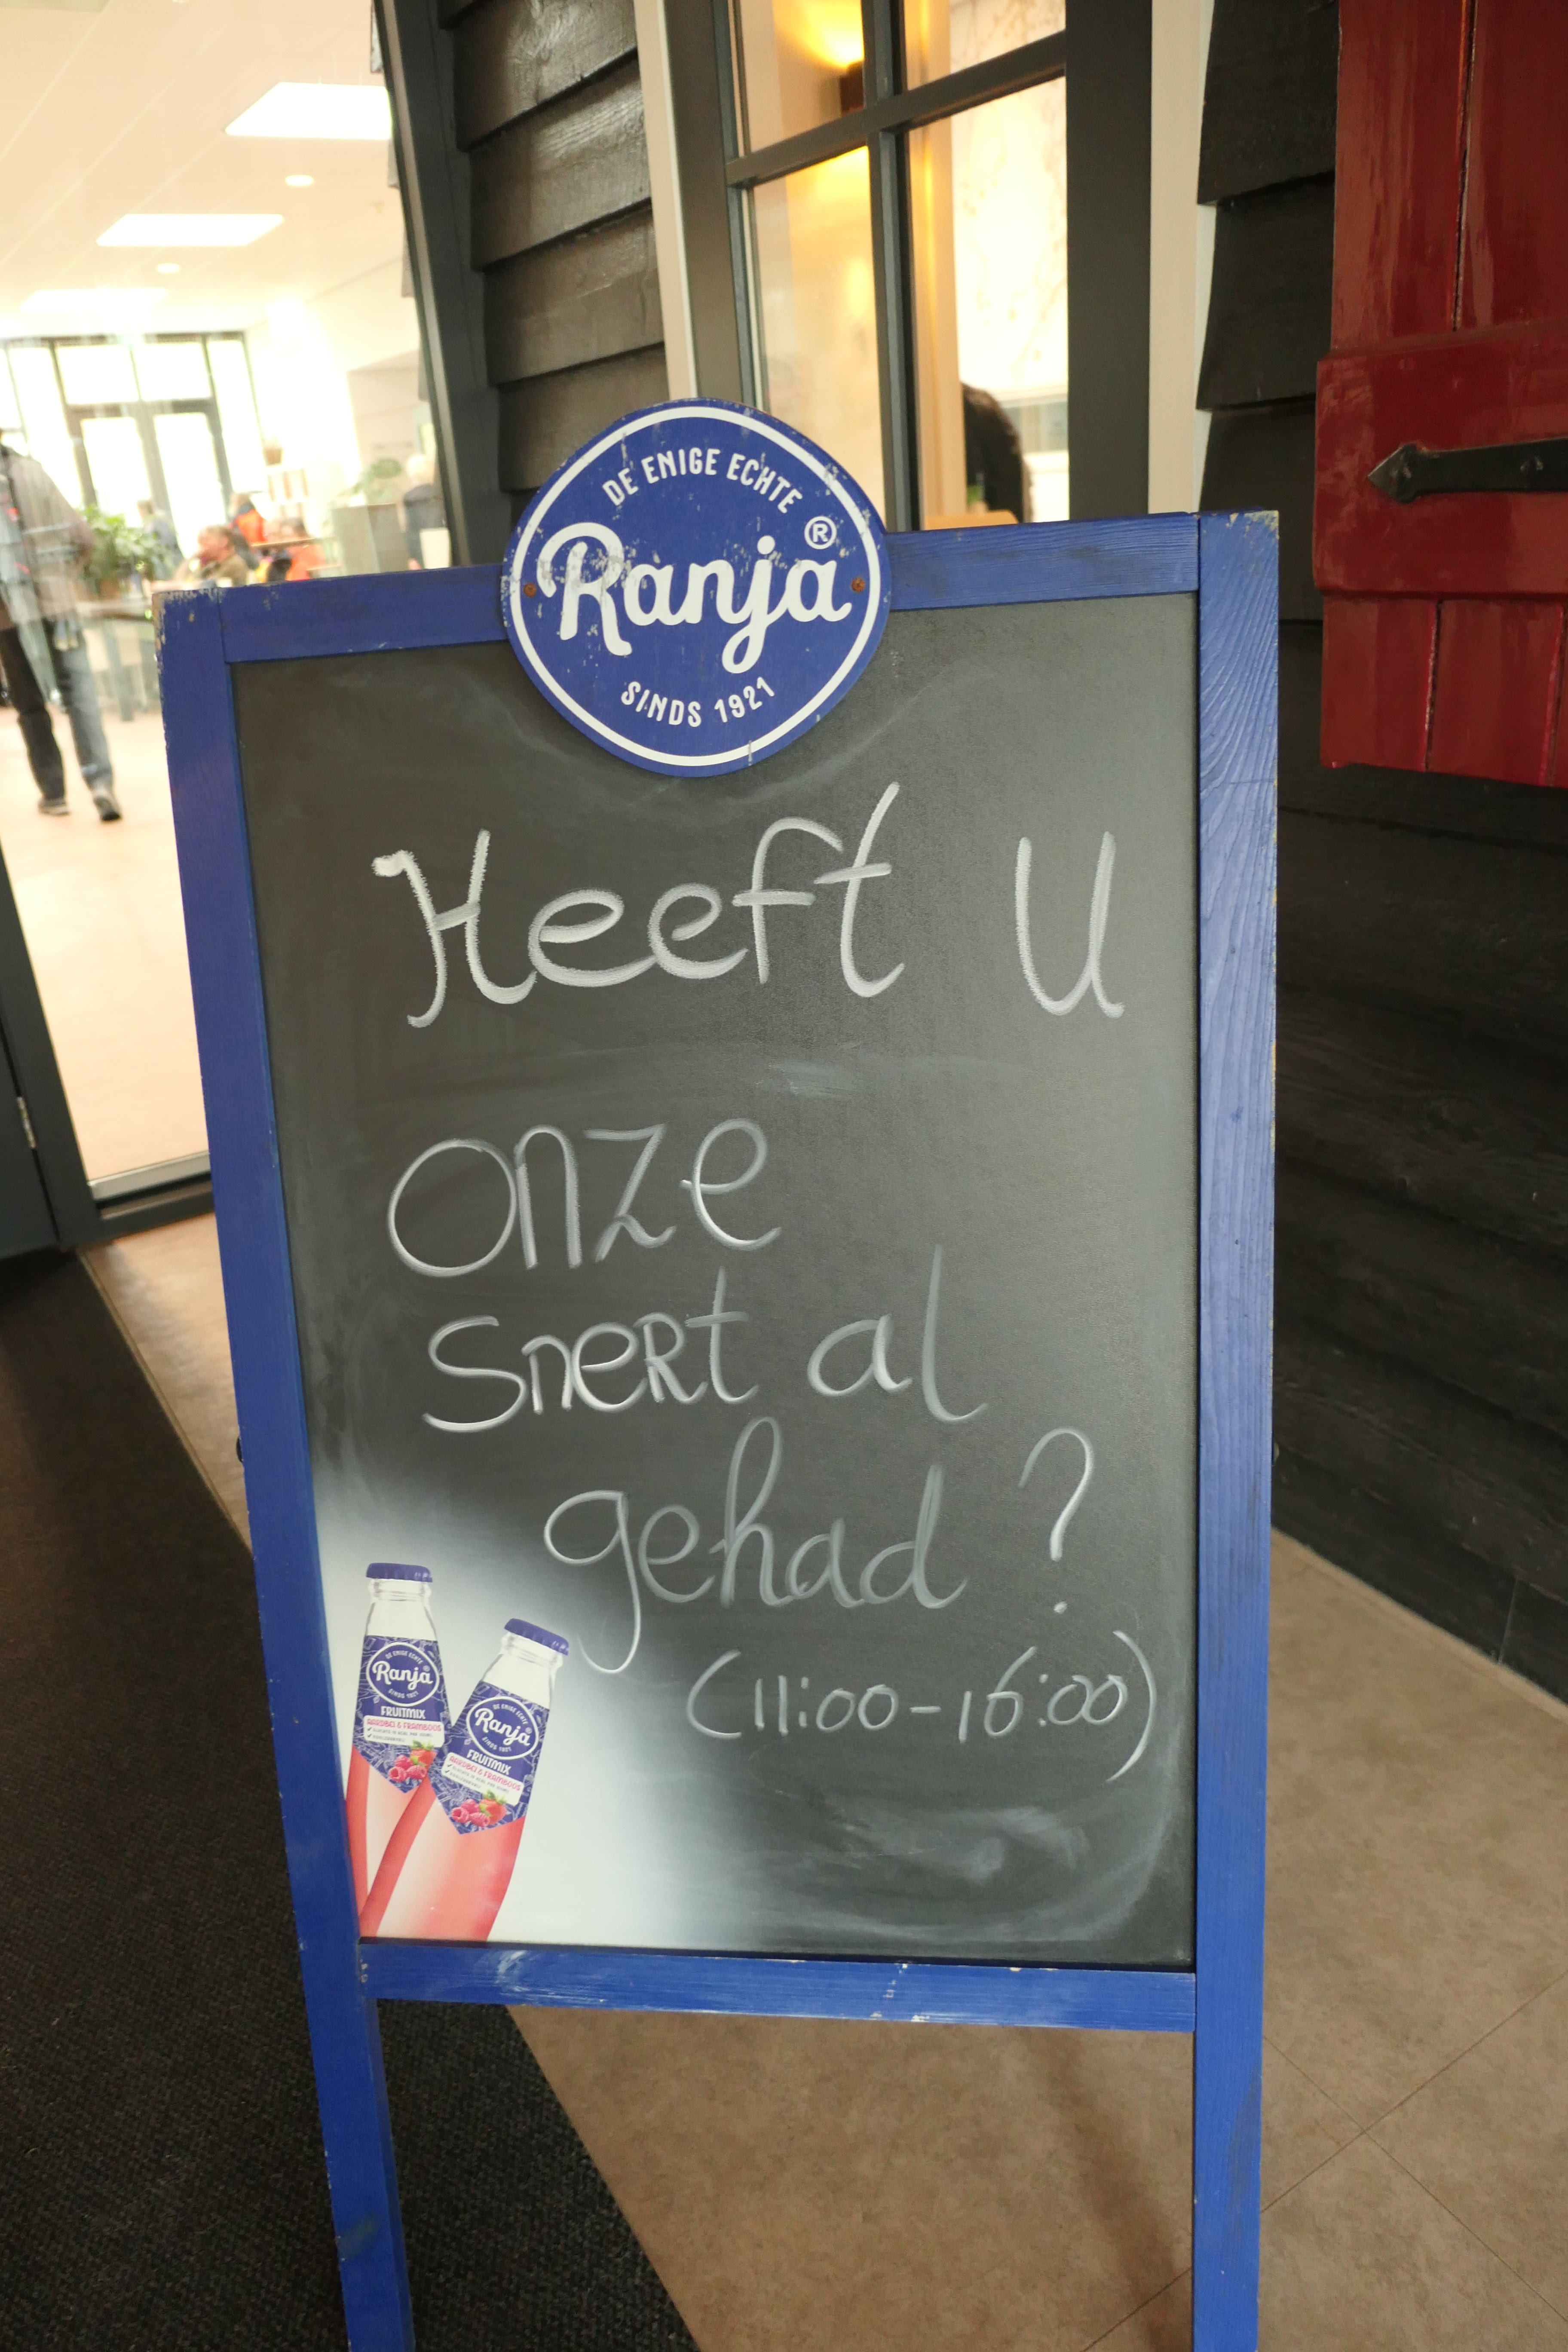 DE ENIGE ECHTE
Ranja®
SINDS 1921
Heeft U
onze
Snert al
gehad?
(11:00-16:00)
DE ENIGE ECHTE
Ranja
SINDS 1921
FRUITMIX
AARDBEI & FRAMBOOS
DE ENIGE ECHTE
Ranja
SINDS 1921
FRUITMIX
AARDBEI & FRAMBOOS